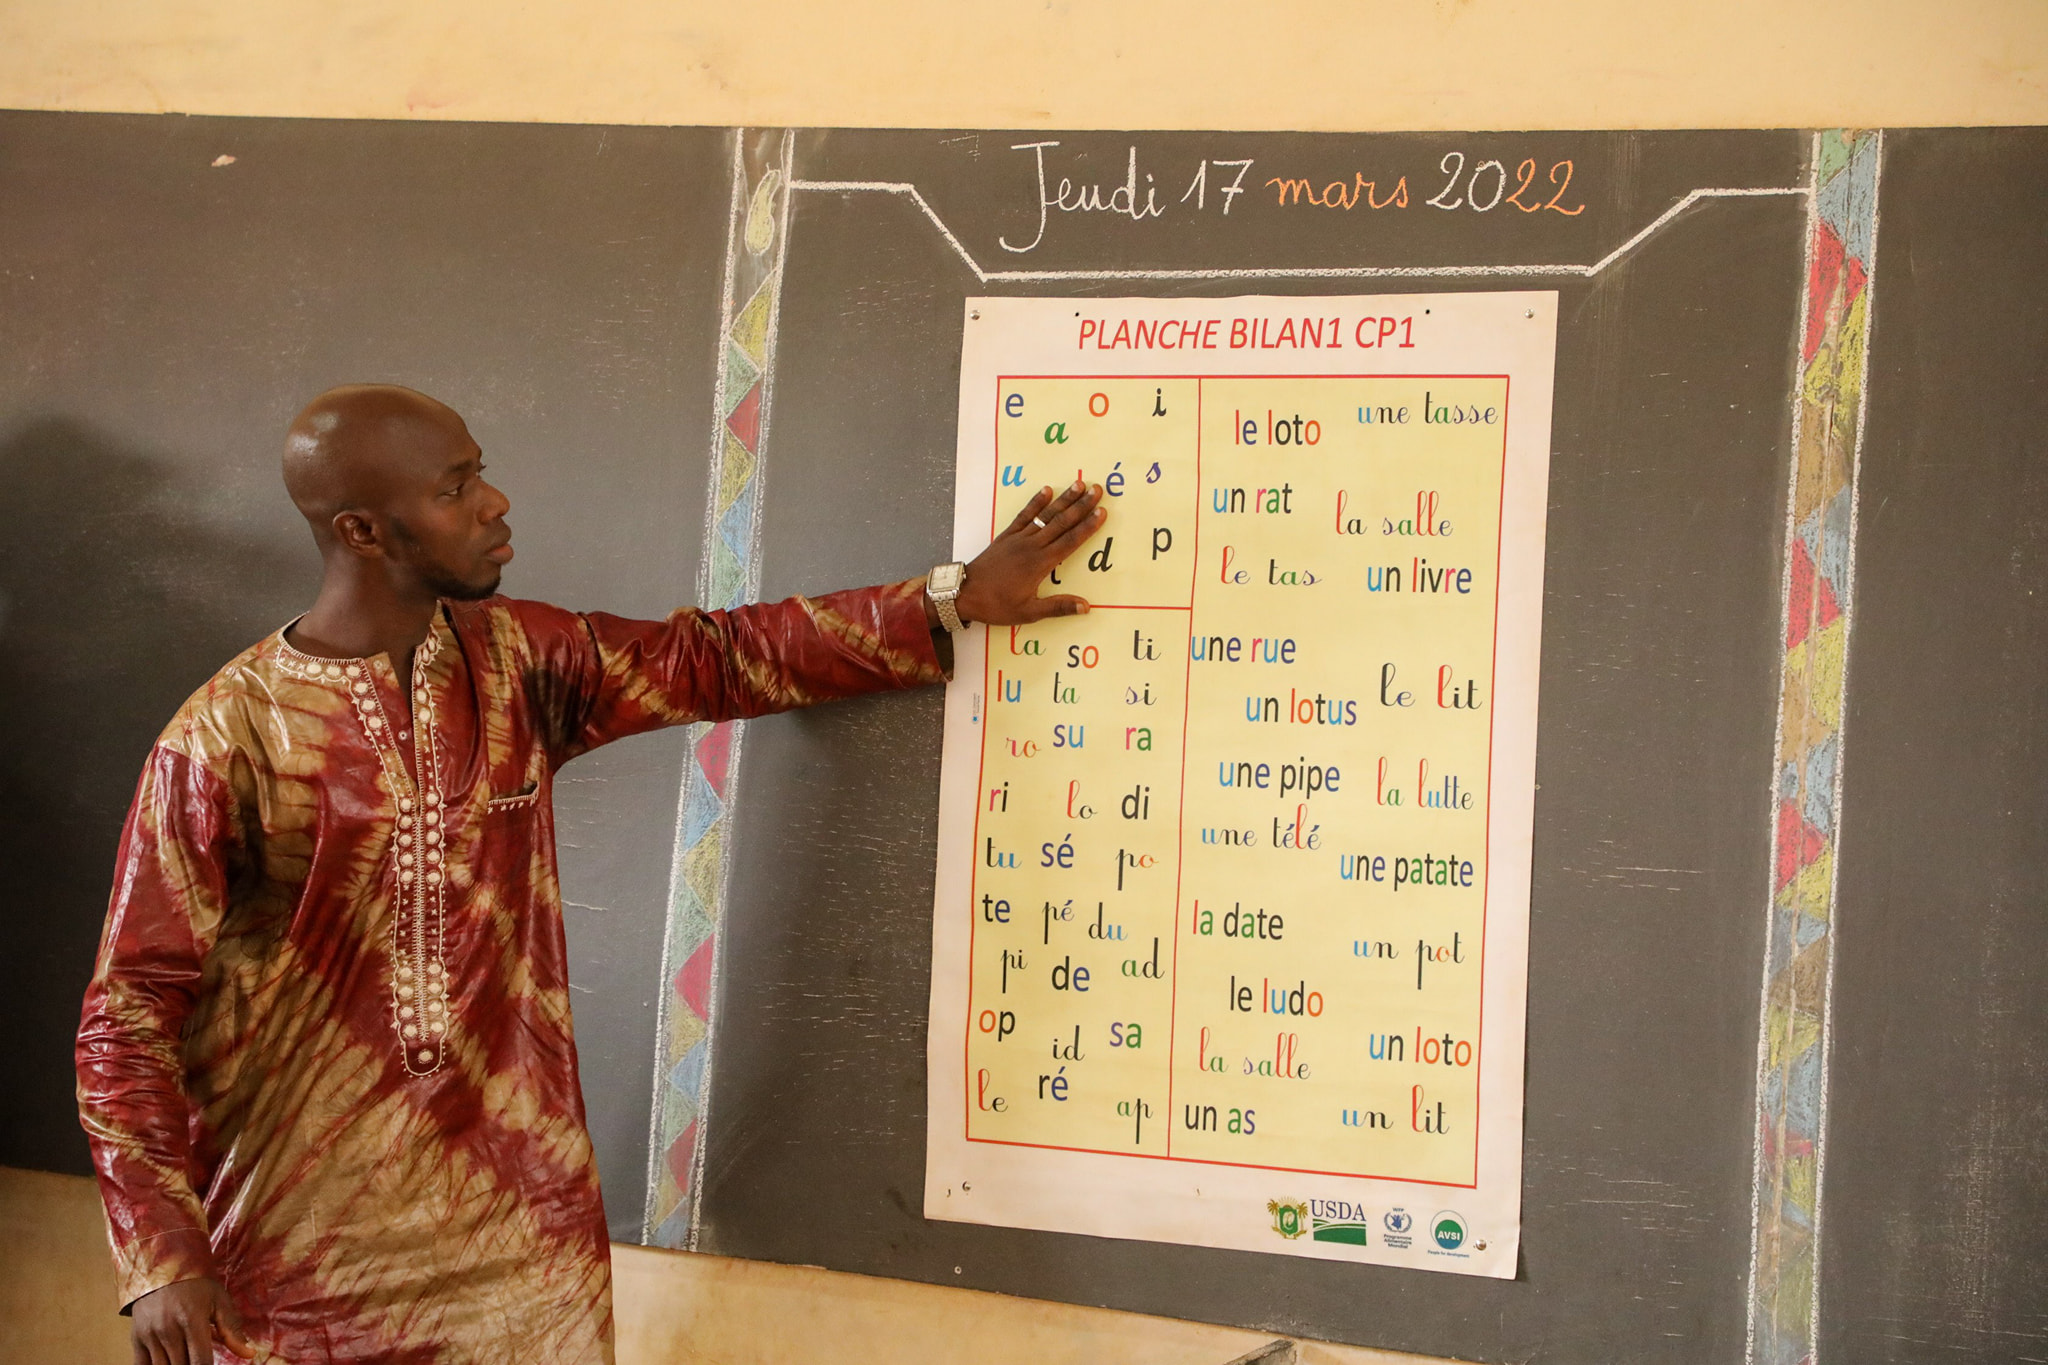 Jeudi 17 mars 2022
PLANCHE BILAN1 CP1
e a o i
u é s
d p
la so ti
lu ta si
ro su ra
ri lo di
tu sé po
te pé du
pi de ad
op id sa
le ré ap
le loto une tasse
un rat la salle
le tas un livre
une rue le lit
un lotus
une pipe la lutte
une télé une patate
la date un pot
le ludo un loto
la salle
un as un lit
USDA
WFP
Programme
Alimentaire
Mondial
AVSI
People for development